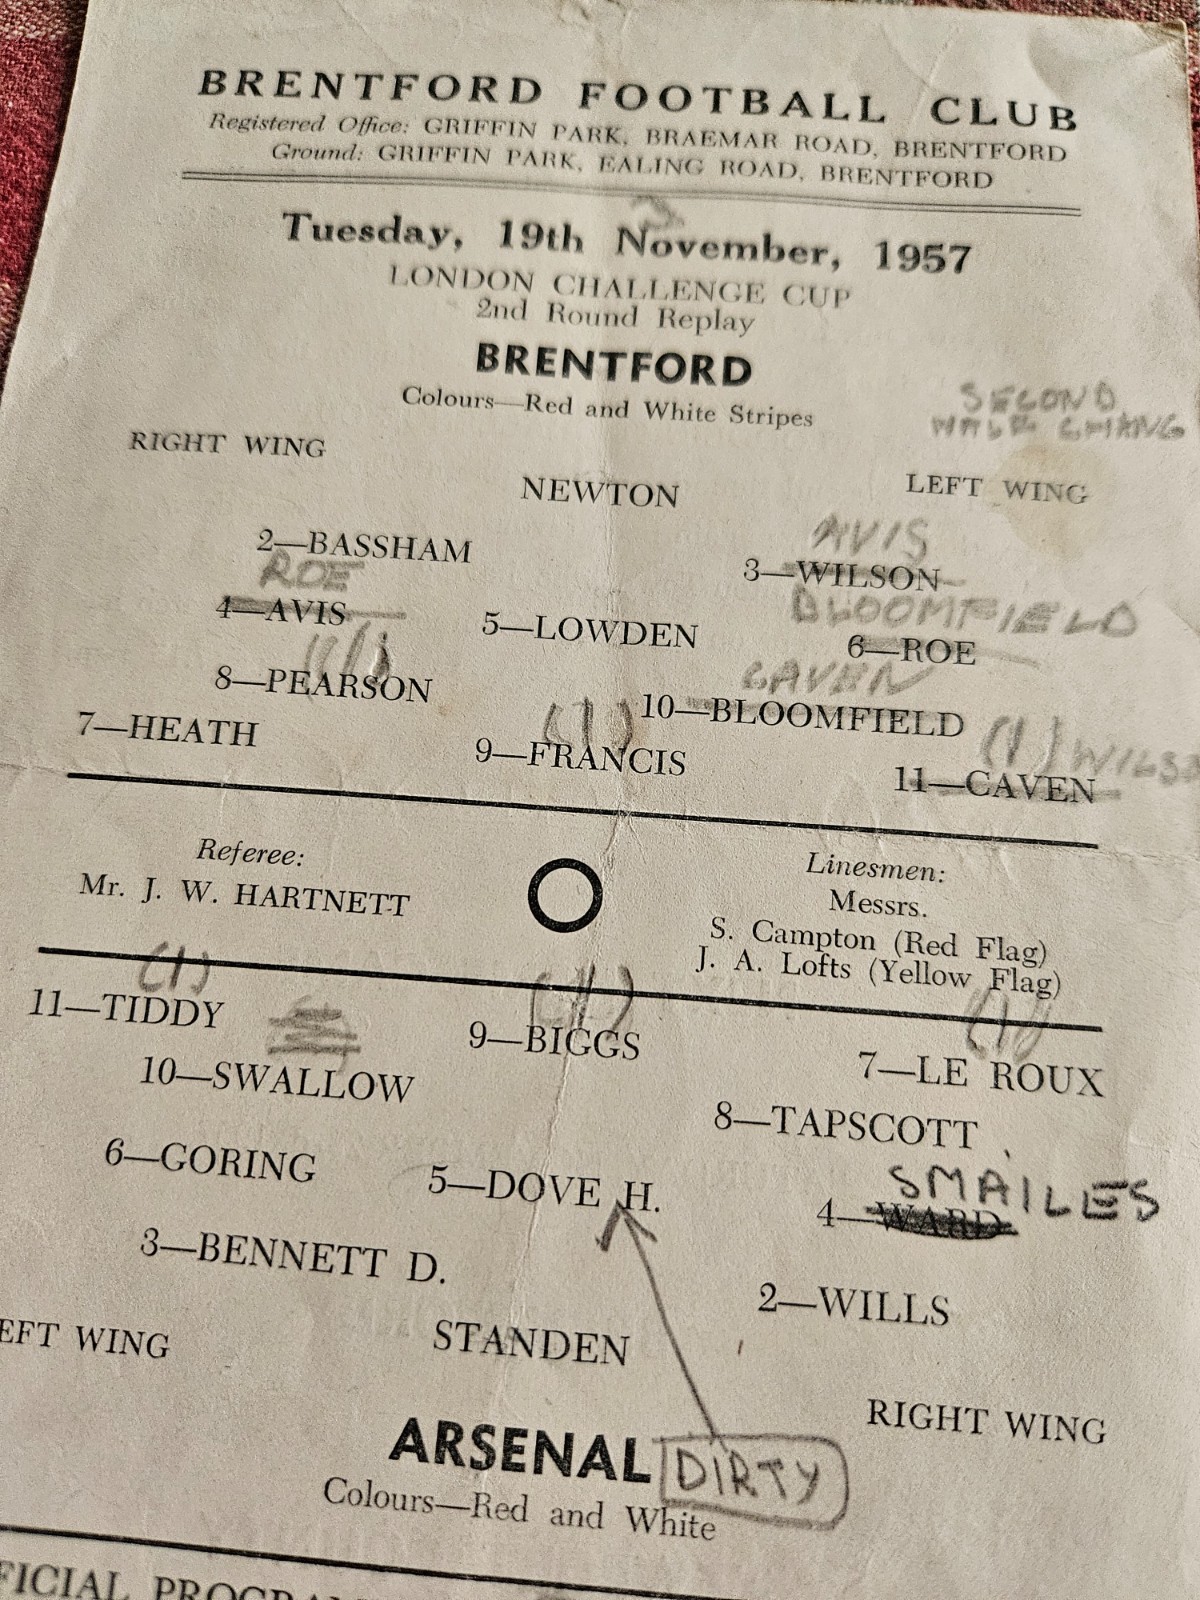 BRENTFORD FOOTBALL CLUB
Registered Office: GRIFFIN PARK, BRAEMAR ROAD, BRENTFORD
Ground: GRIFFIN PARK, EALING ROAD, BRENTFORD
Tuesday, 19th November, 1957
LONDON CHALLENGE CUP
2nd Round Replay
BRENTFORD
Colours—Red and White Stripes
SECOND
HALF CHANG
RIGHT WING
NEWTON
LEFT WING
2—BASSHAM
AVIS
3—WILSON
ROE
4—AVIS
5—LOWDEN
BLOOMFIELD
6—ROE
8—PEARSON
CAVEN
10—BLOOMFIELD
7—HEATH
(1)
9—FRANCIS
(1) WILS
11—CAVEN
Referee:
Mr. J. W. HARTNETT
Linesmen:
Messrs.
S. Campton (Red Flag)
J. A. Lofts (Yellow Flag)
(1)
11—TIDDY
9—BIGGS
(1)
7—LE ROUX
10—SWALLOW
8—TAPSCOTT
6—GORING
5—DOVE H.
SMAILES
4—WARD
3—BENNETT D.
2—WILLS
EFT WING
STANDEN
RIGHT WING
ARSENAL DIRTY
Colours—Red and White
FICIAL PROGRA